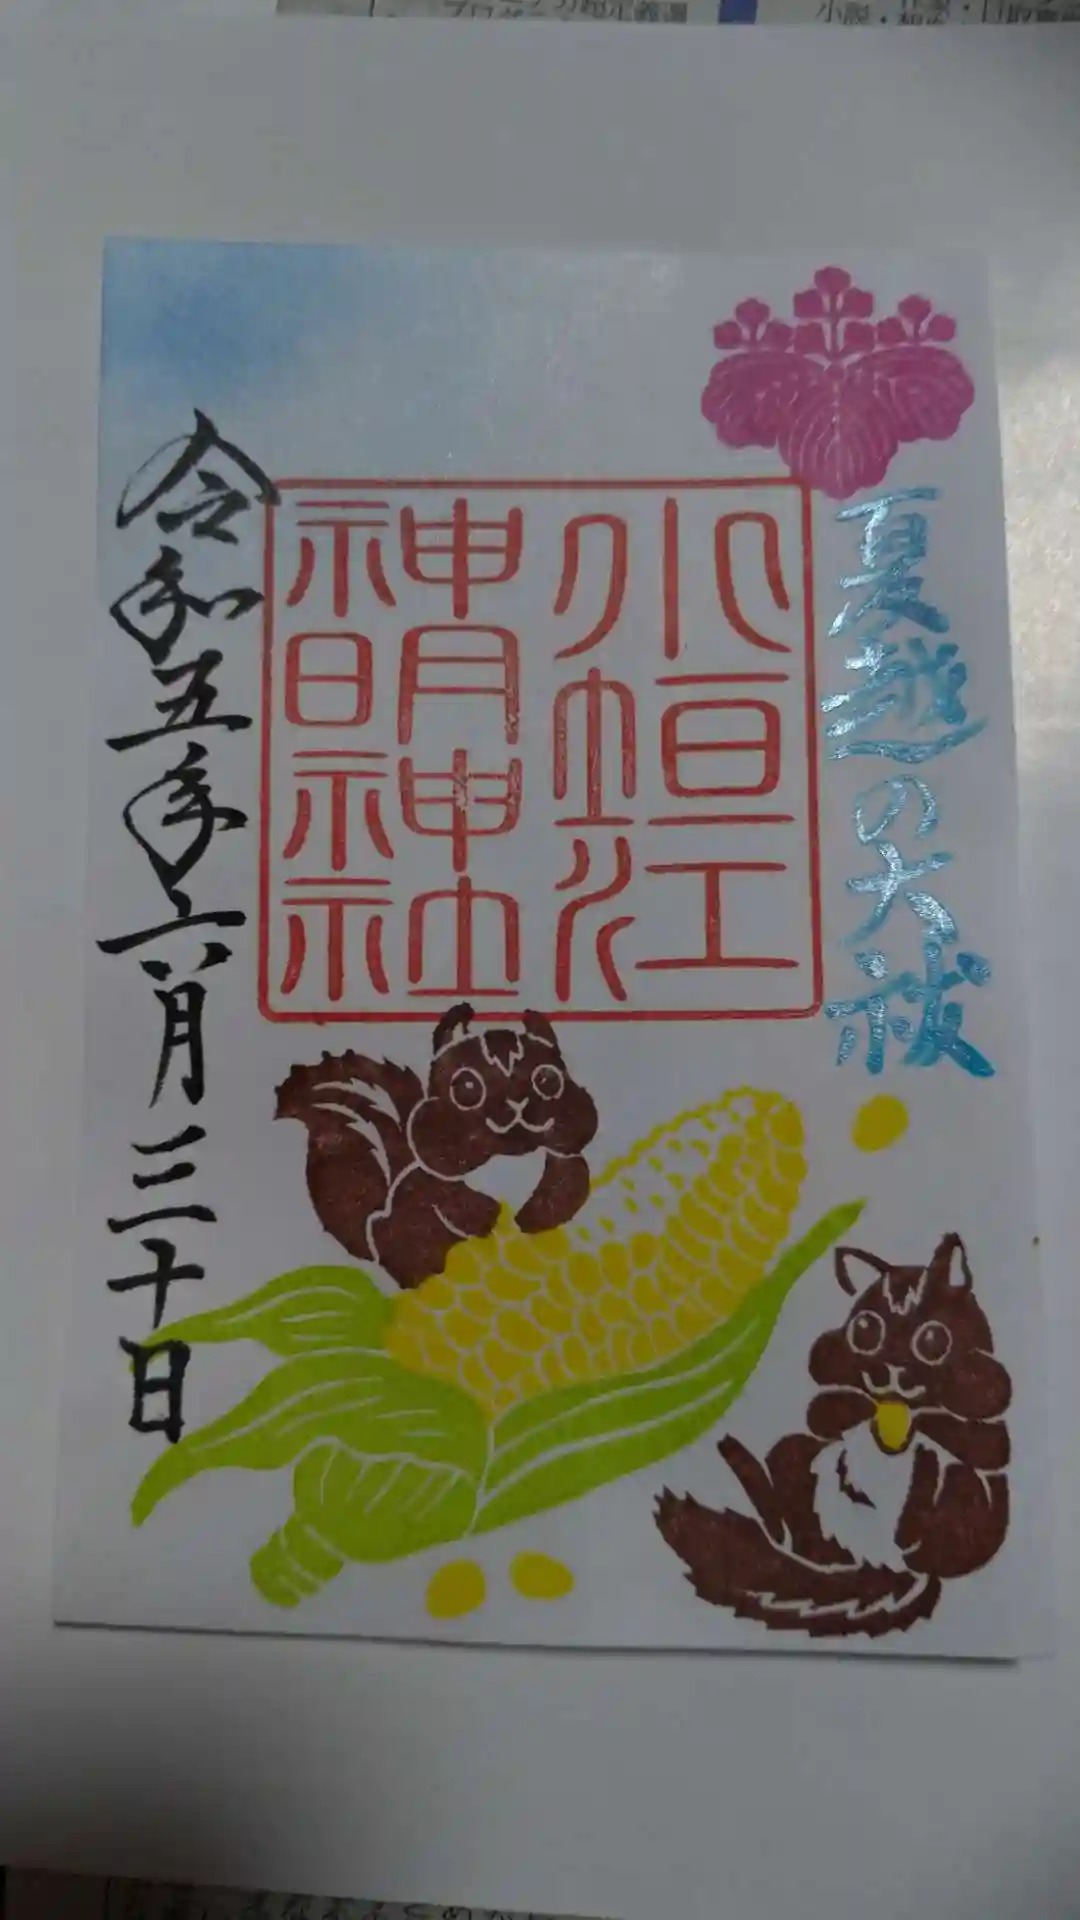 夏越の大祓
小垣江
神明神社
令和五年六月三十日